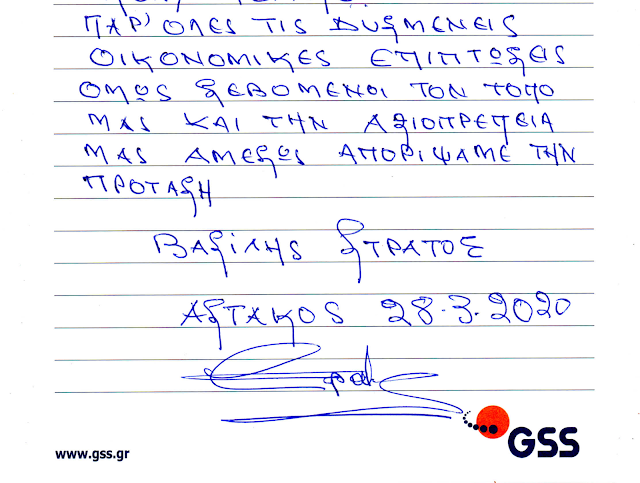 ΠΑΡ' ΟΛΕΣ ΤΙΣ ΔΥΣΜΕΝΕΙΣ
ΟΙΚΟΝΟΜΙΚΕΣ ΕΠΙΠΤΩΣΕΙΣ
ΟΜΩΣ ΣΕΒΟΜΕΝΟΙ ΤΟΝ ΤΟΠΟ
ΜΑΣ ΚΑΙ ΤΗΝ ΑΞΙΟΠΡΕΠΕΙΑ
ΜΑΣ ΑΜΕΣΩΣ ΑΠΟΡΙΨΑΜΕ ΤΗΝ
ΠΡΟΤΑΣΗ
ΒΑΣΙΛΗΣ ΣΤΡΑΤΟΣ
ΑΣΤΑΚΟΣ 28.3.2020
www.gss.gr
GSS